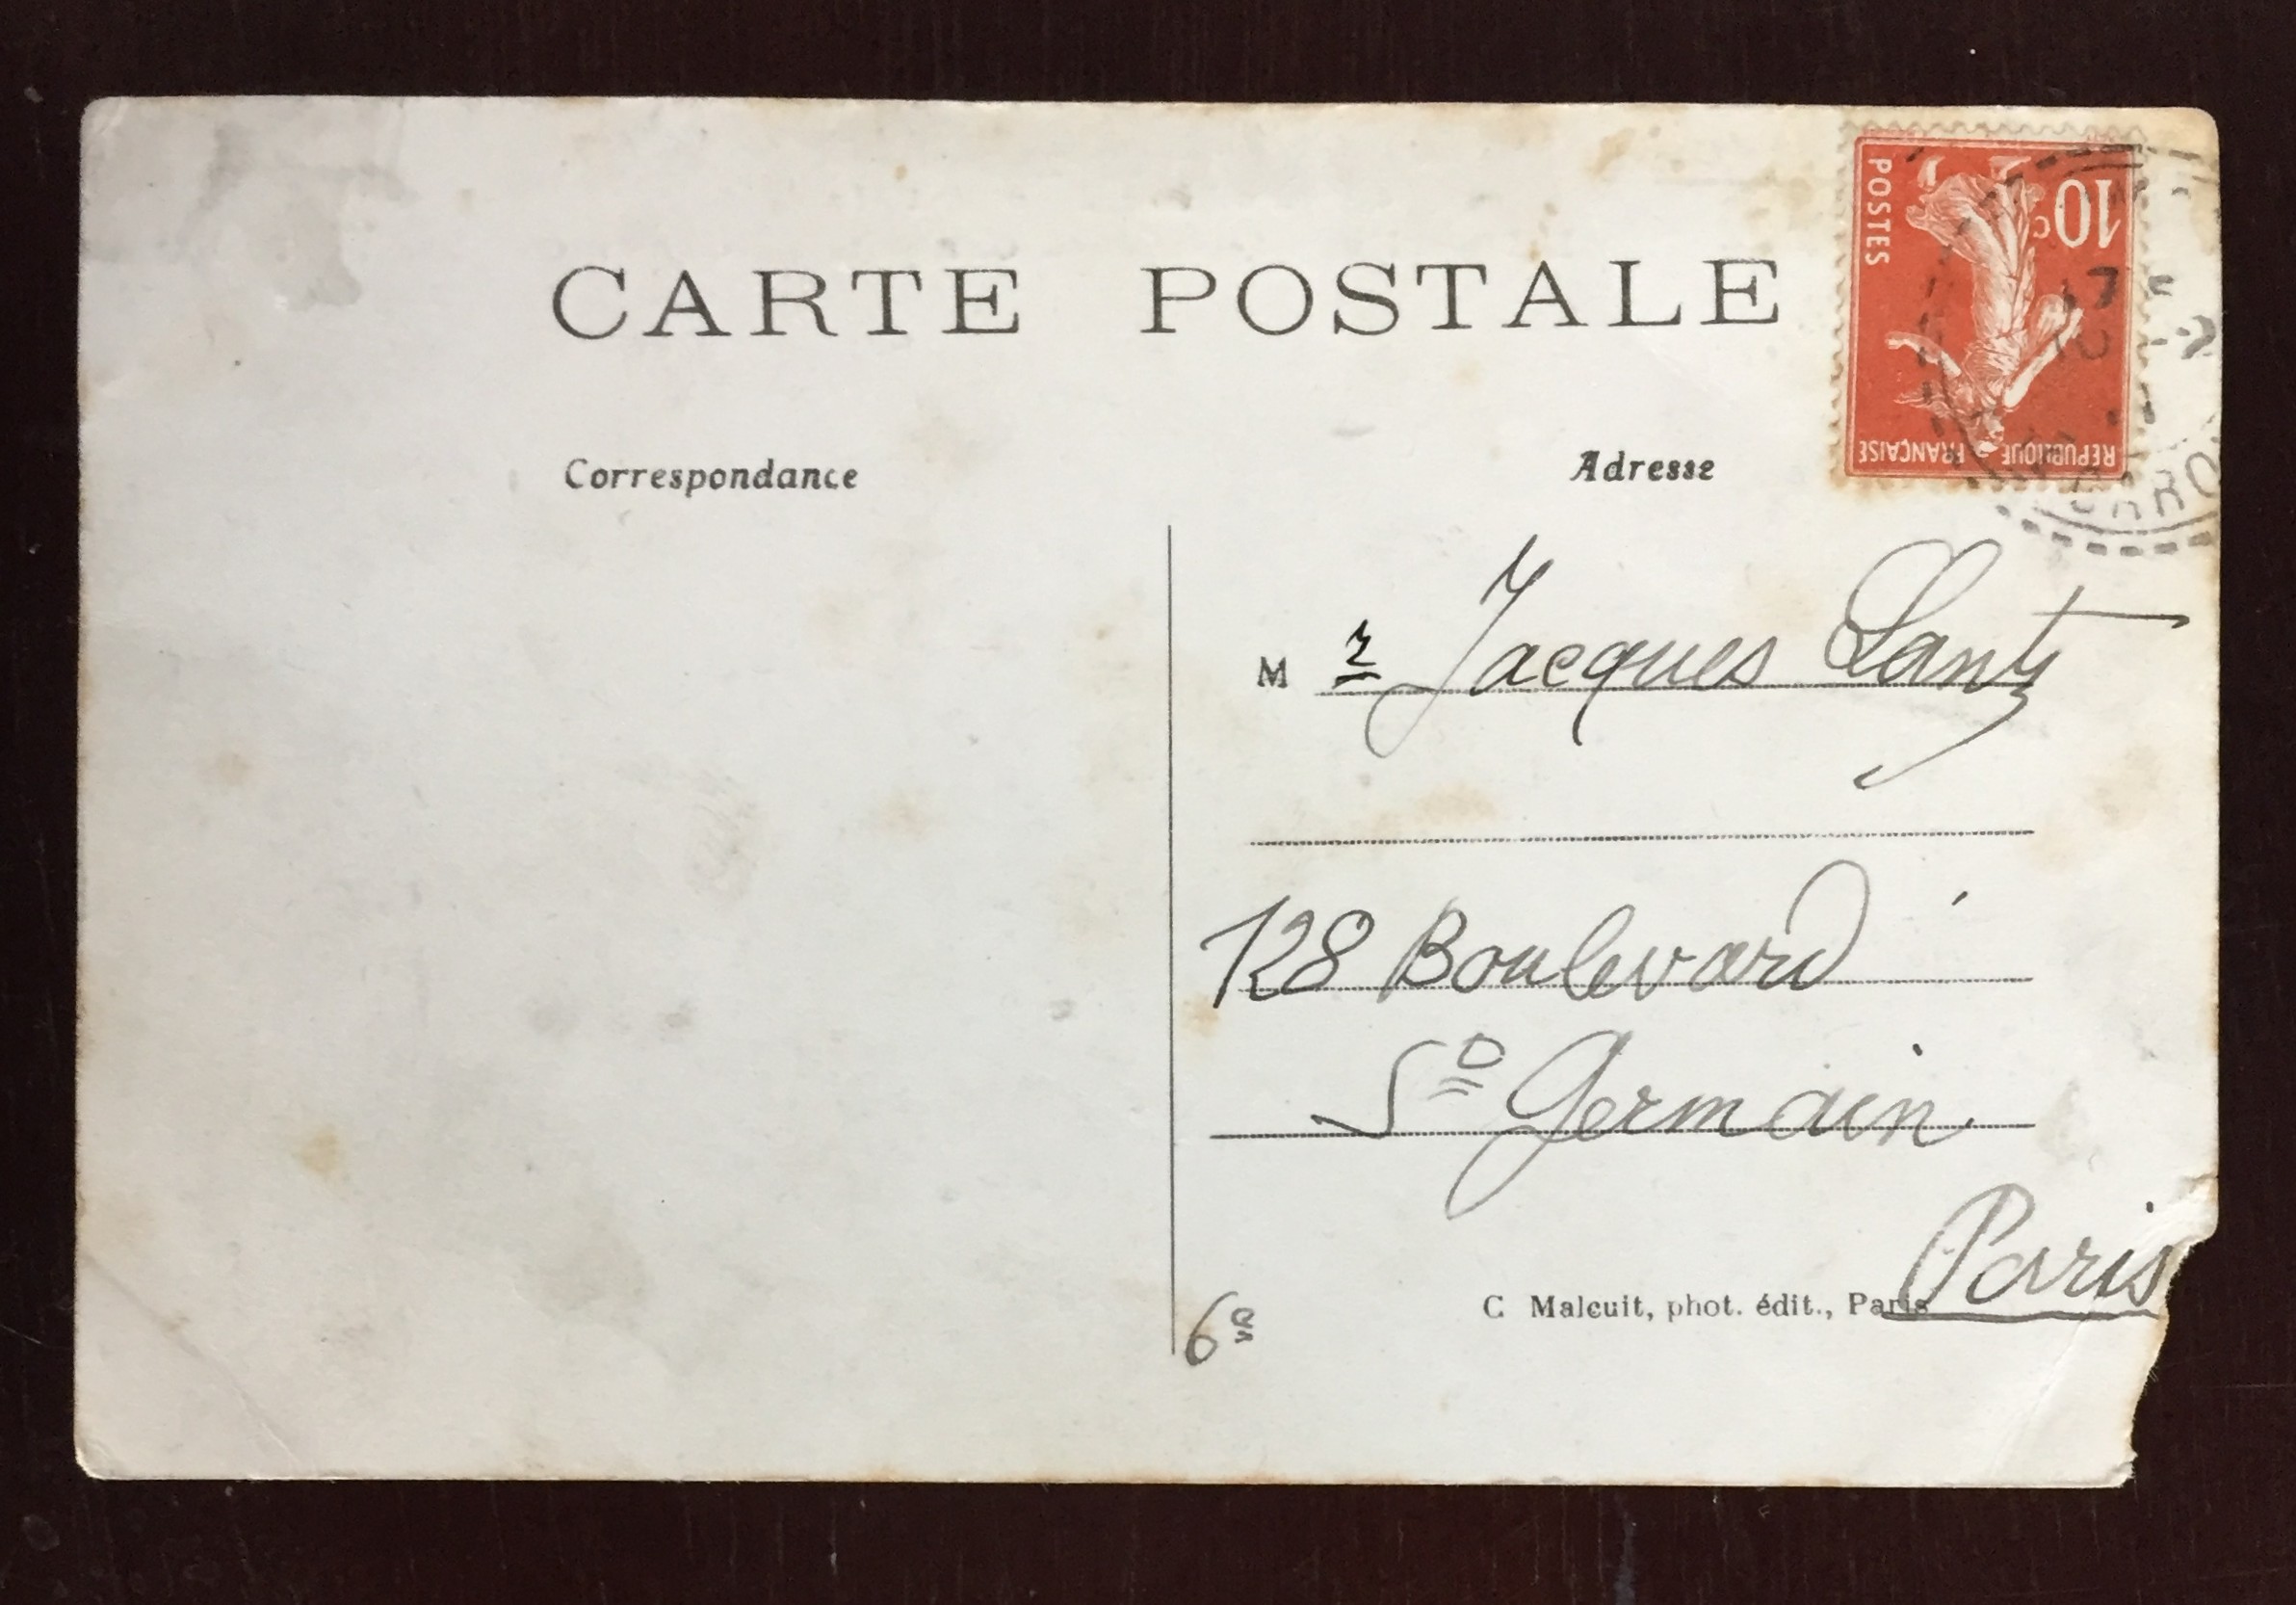 CARTE POSTALE
POSTES
10c
REPUBLIQUE FRANÇAISE
Correspondance
Adresse
Mr Jacques Lantz
128 Boulevard
St Germain
Paris
C Malcuit, phot. édit., Paris
6e